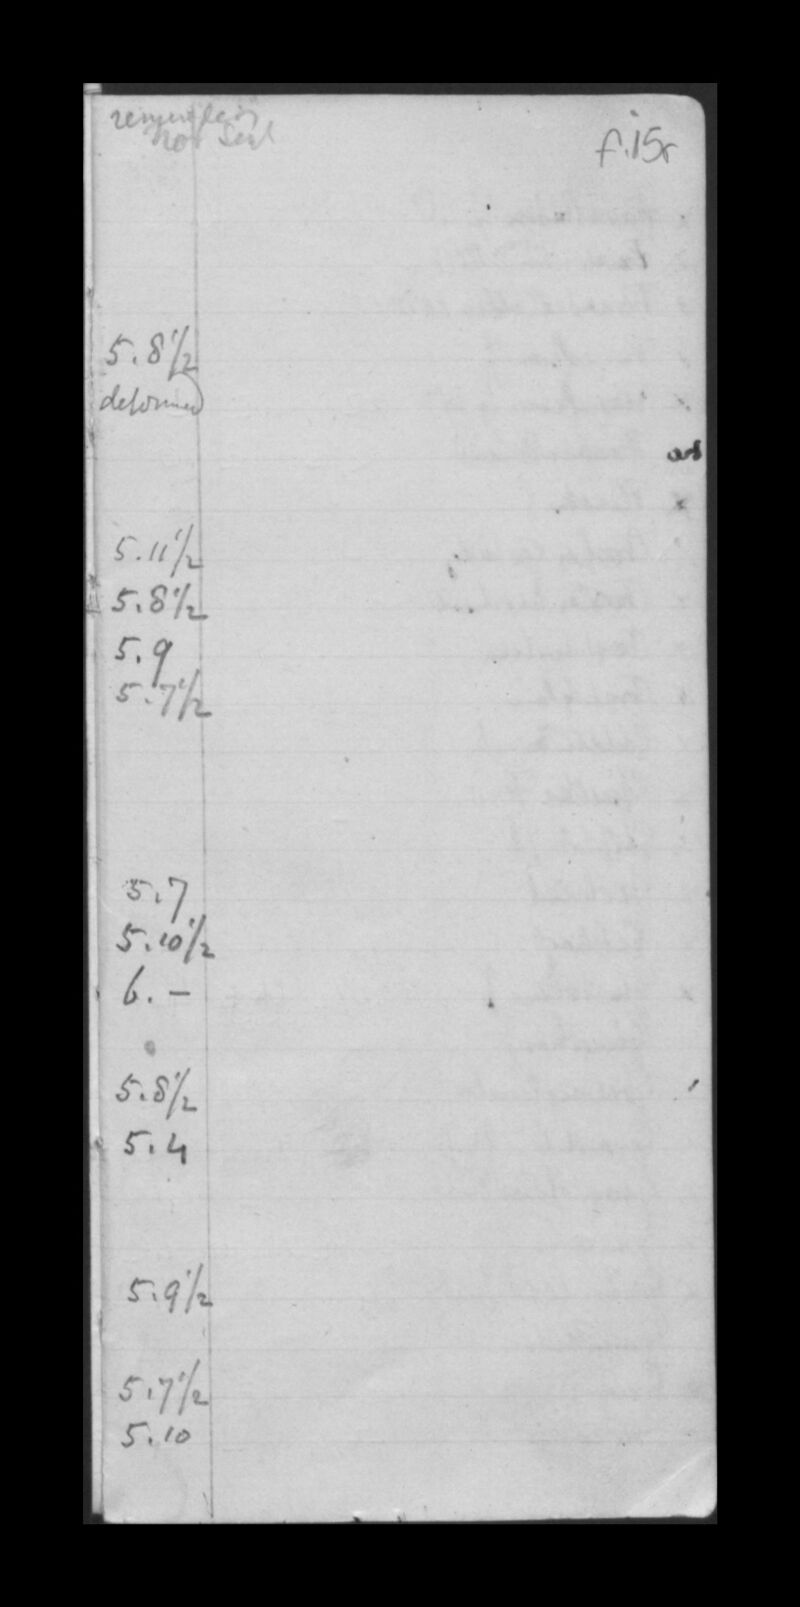 f.15r
not sent
5.8 1/2
deformed
5.11 1/2
5.8 1/2
5.9
5.7 1/2
5.7
5.10 1/2
6.-
5.8 1/2
5.4
5.9 1/2
5.7 1/2
5.10